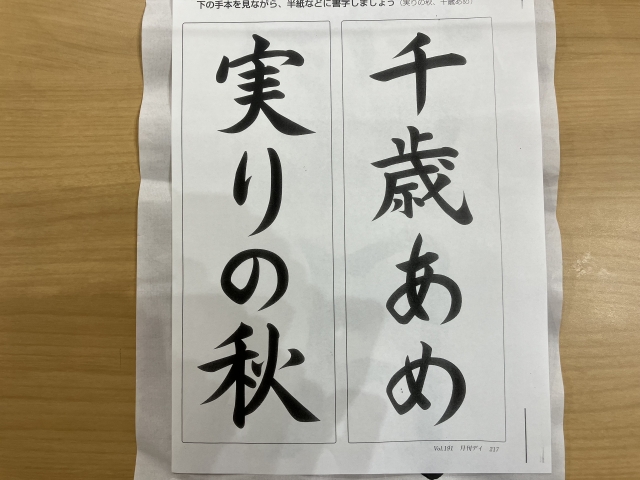 下の手本を見ながら、半紙などに書字しましょう（実りの秋、千歳あめ）
千歳あめ
実りの秋
Vol.191 月刊デイ 217